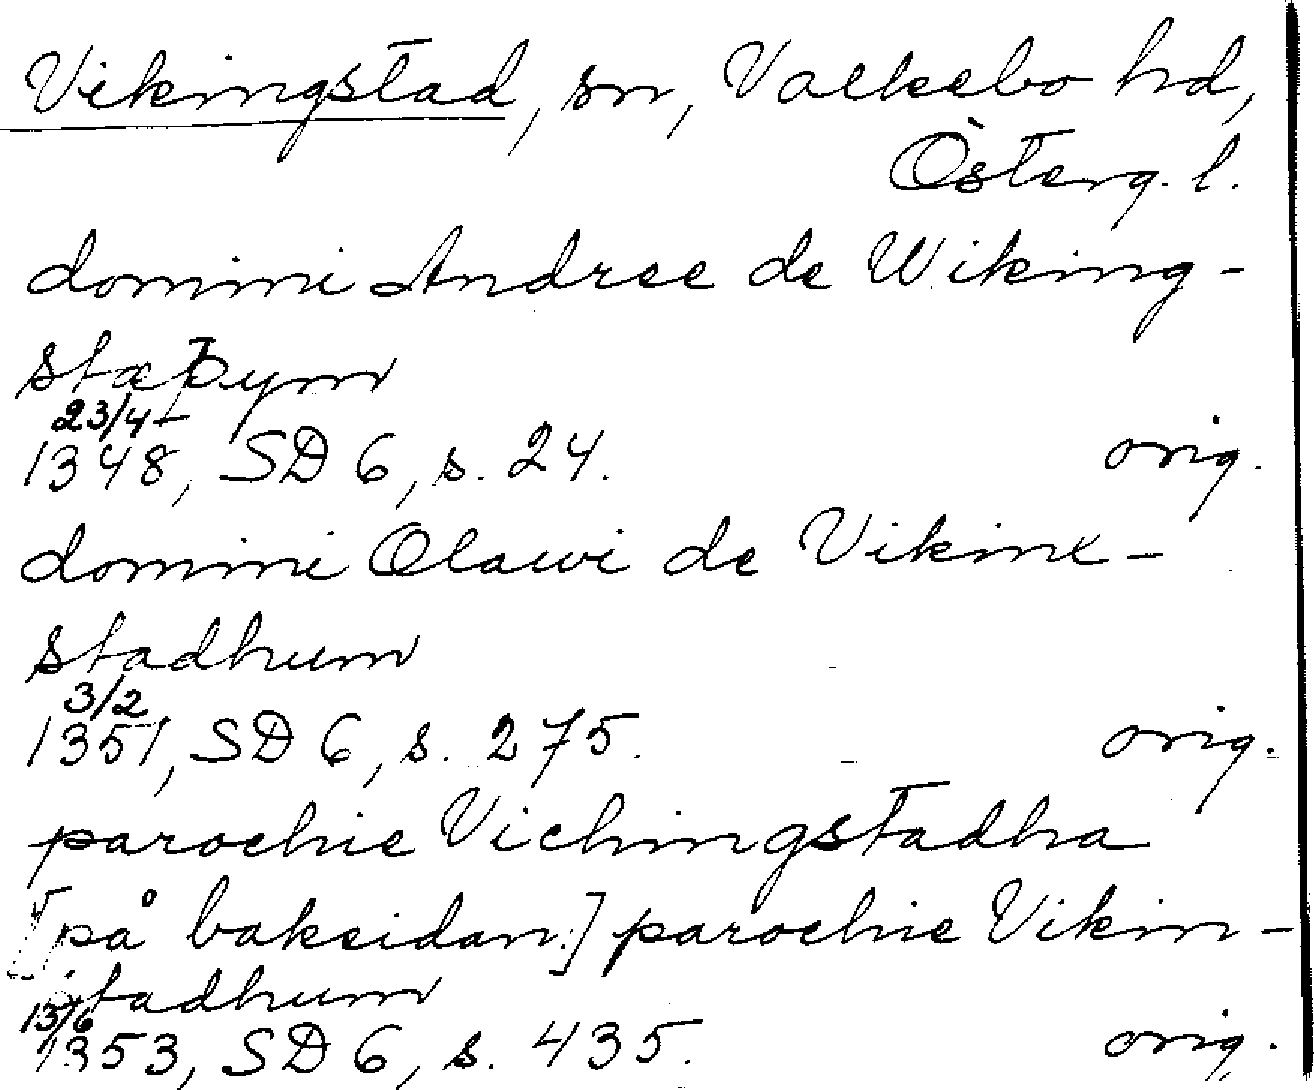 Vikingstad, sn, Valkebo hd,
Österg. l.
domini Andree de Wiking-
stæþym
23/4
1348, SD 6, s. 24. orig.
domini Olawi de Vikinx-
stadhum
3/2
1351, SD 6, s. 275. orig.
parochie Vichingstadha
[på baksidan] parochie Vikin-
stadhum
13/6
1353, SD 6, s. 435. orig.